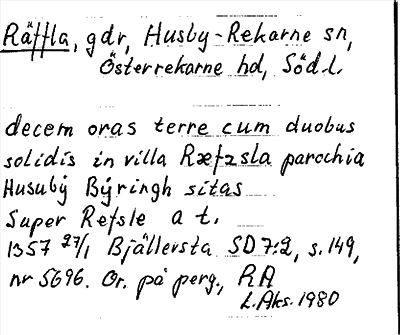 Räffla, gdr, Husby-Rekarne sn,
Österrekarne hd, Söd.l.
decem oras terre cum duobus
solidis in villa Ræfzsla parochia
Husubý Býringh sitas
Super Refsle a t.
1357 27/1 Bjällersta SD 7:2, s. 149,
nr 5696. Or. på perg., RA
L.Aks. 1980